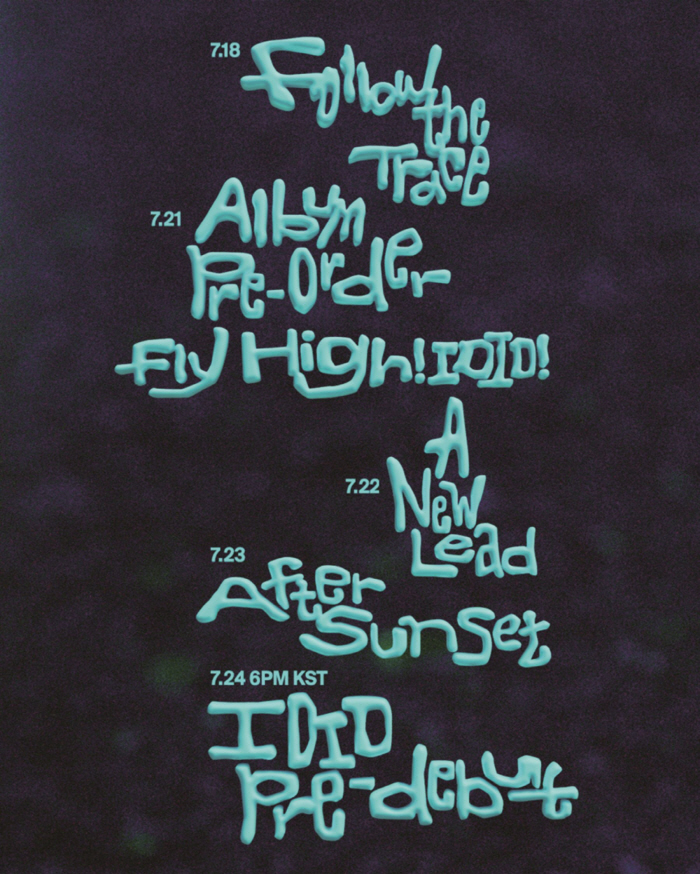 7.18
Follow
the
Trace
7.21
Album
Pre-Order
Fly High! IDID!
7.22
A
New
Lead
7.23
After
Sunset
7.24 6PM KST
IDID
Pre-debut